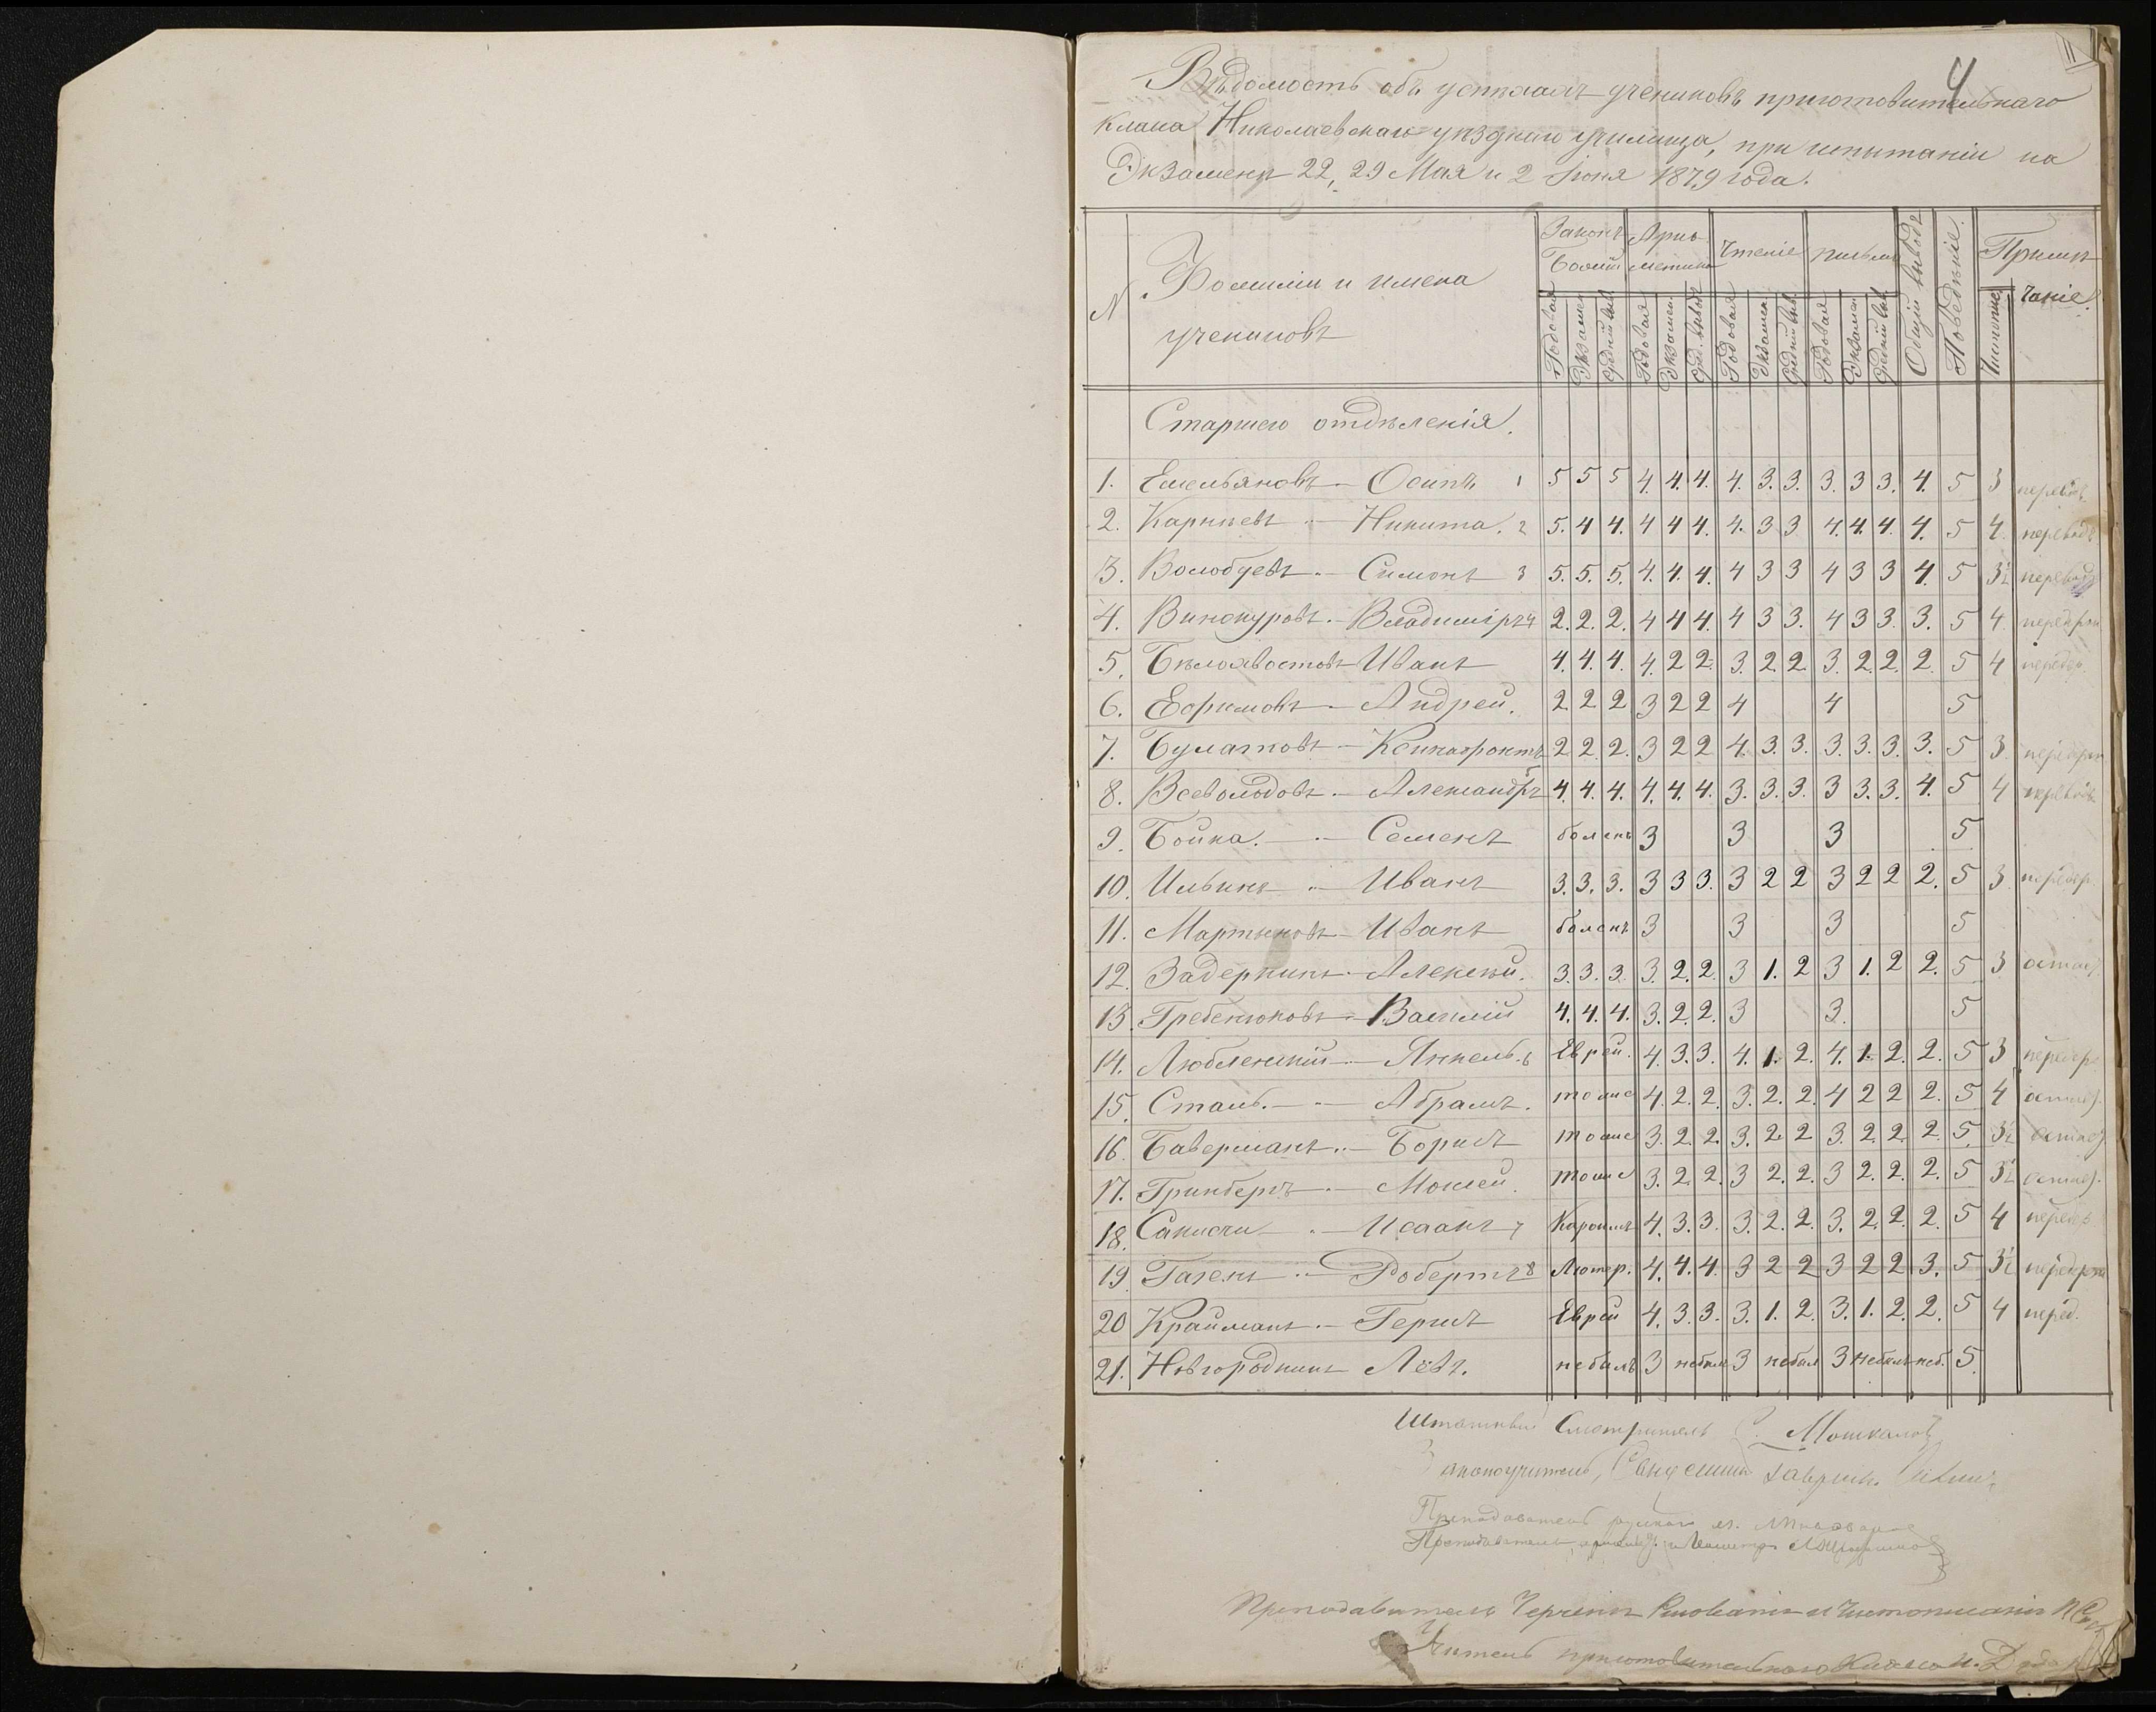 4
Вѣдомость объ успѣхахъ учениковъ приготовительнаго
класса Николаевскаго уѣзднаго училища, при испытаніи на
Экзаменѣ 22, 29 Мая и 2 Іюня 1879 года.
№ Фамиліи и имена учениковъ Законъ Божій Арифметика Чтеніе письмо Общій выводъ Поведеніе Примѣчаніе
Годовая Экзамен Средній выв. Годовая Экзамен Сред. выводъ Годовая Экзамен Средній выв. Годовая Экзамен Средній выв. Чистопис.
Старшего отдѣленія.
1. Емельяновъ — Осипъ 1 5 5 5 4. 4. 4. 4. 3. 3. 3. 3 3. 4. 5 3 перевод.
2. Карпѣевъ — Никита. 2 5. 4 4. 4 4 4. 4. 3 3 4. 4. 4. 4. 5 4. переводъ
3. Волобуевъ — Симонъ 3 5. 5. 5. 4. 4. 4. 4 3 3 4 3 3 4. 5 3½ переводъ
4. Винокуровъ — Владиміръ 4 2. 2. 2. 4 4 4. 4 3 3. 4 3 3. 3. 5 4.
5. Бѣлохвостовъ Иванъ 4. 4. 4. 4. 2 2. 3. 2 2 3. 2. 2. 2. 5 4 передер.
6. Ефимовъ — Андрей. 2 2 2 3 2 2 4 4 5
7. Булатовъ — Ксинофонтъ 2 2 2. 3 2 2 4. 3. 3. 3. 3. 3. 3. 5 3
8. Всеволодовъ — Александръ 4. 4. 4. 4. 4. 4. 3. 3. 3. 3 3. 3. 4. 5 4 перевод.
9. Бойка. — Семенъ боленъ 3 3 3 5
10. Ильинъ — Иванъ 3. 3. 3. 3 3 3. 3 2 2 3 2 2 2. 5 3 передер.
11. Мартыновъ — Иванъ боленъ 3 3 3 5
12. Задеркинъ — Алексѣй. 3. 3. 3. 3 2. 2. 3 1. 2 3 1. 2 2. 5 3 остает.
13. Гребенюковъ — Василій 4. 4. 4. 3. 2. 2. 3 3. 5
14. Любленскій — Янкель. 6 Еврей. 4. 3. 3. 4. 1. 2. 4. 1. 2. 2. 5 3 передер.
15. Сталь. — Абрамъ. тоже 4. 2. 2. 3. 2. 2. 4 2 2 2. 5 4 остает.
16. Баверманъ — Борисъ тоже 3. 2. 2. 3. 2. 2 3. 2. 2. 2. 5. 3½ остает.
17. Гринбергъ — Мошей. тоже 3. 2. 2. 3 2. 2. 3 2. 2. 2. 5 3½ остает.
18. — Исаакъ 7 Караимъ 4. 3. 3. 3. 2. 2. 3. 2. 2. 2. 5 4
19. Гагенъ — Робертъ 8 Лютер. 4. 4. 4. 3 2 2 3 2 2 3. 5 3½
20 Крайманъ — Гершъ Еврей 4. 3. 3. 3. 1. 2. 3. 1. 2. 2. 5 4 перед.
21. Новгородкинъ Левъ. небылъ 3 небыл 3 небыл 3 небылъ неб. 5.
Штатный Смотритель С. Мошкаловъ
Законоучитель, Священникъ Гавріилъ
Преподаватель русскаго яз.
Преподаватель
Преподаватель Черченія Рисованія и Чистописанія
Учитель приготовительнаго Класса